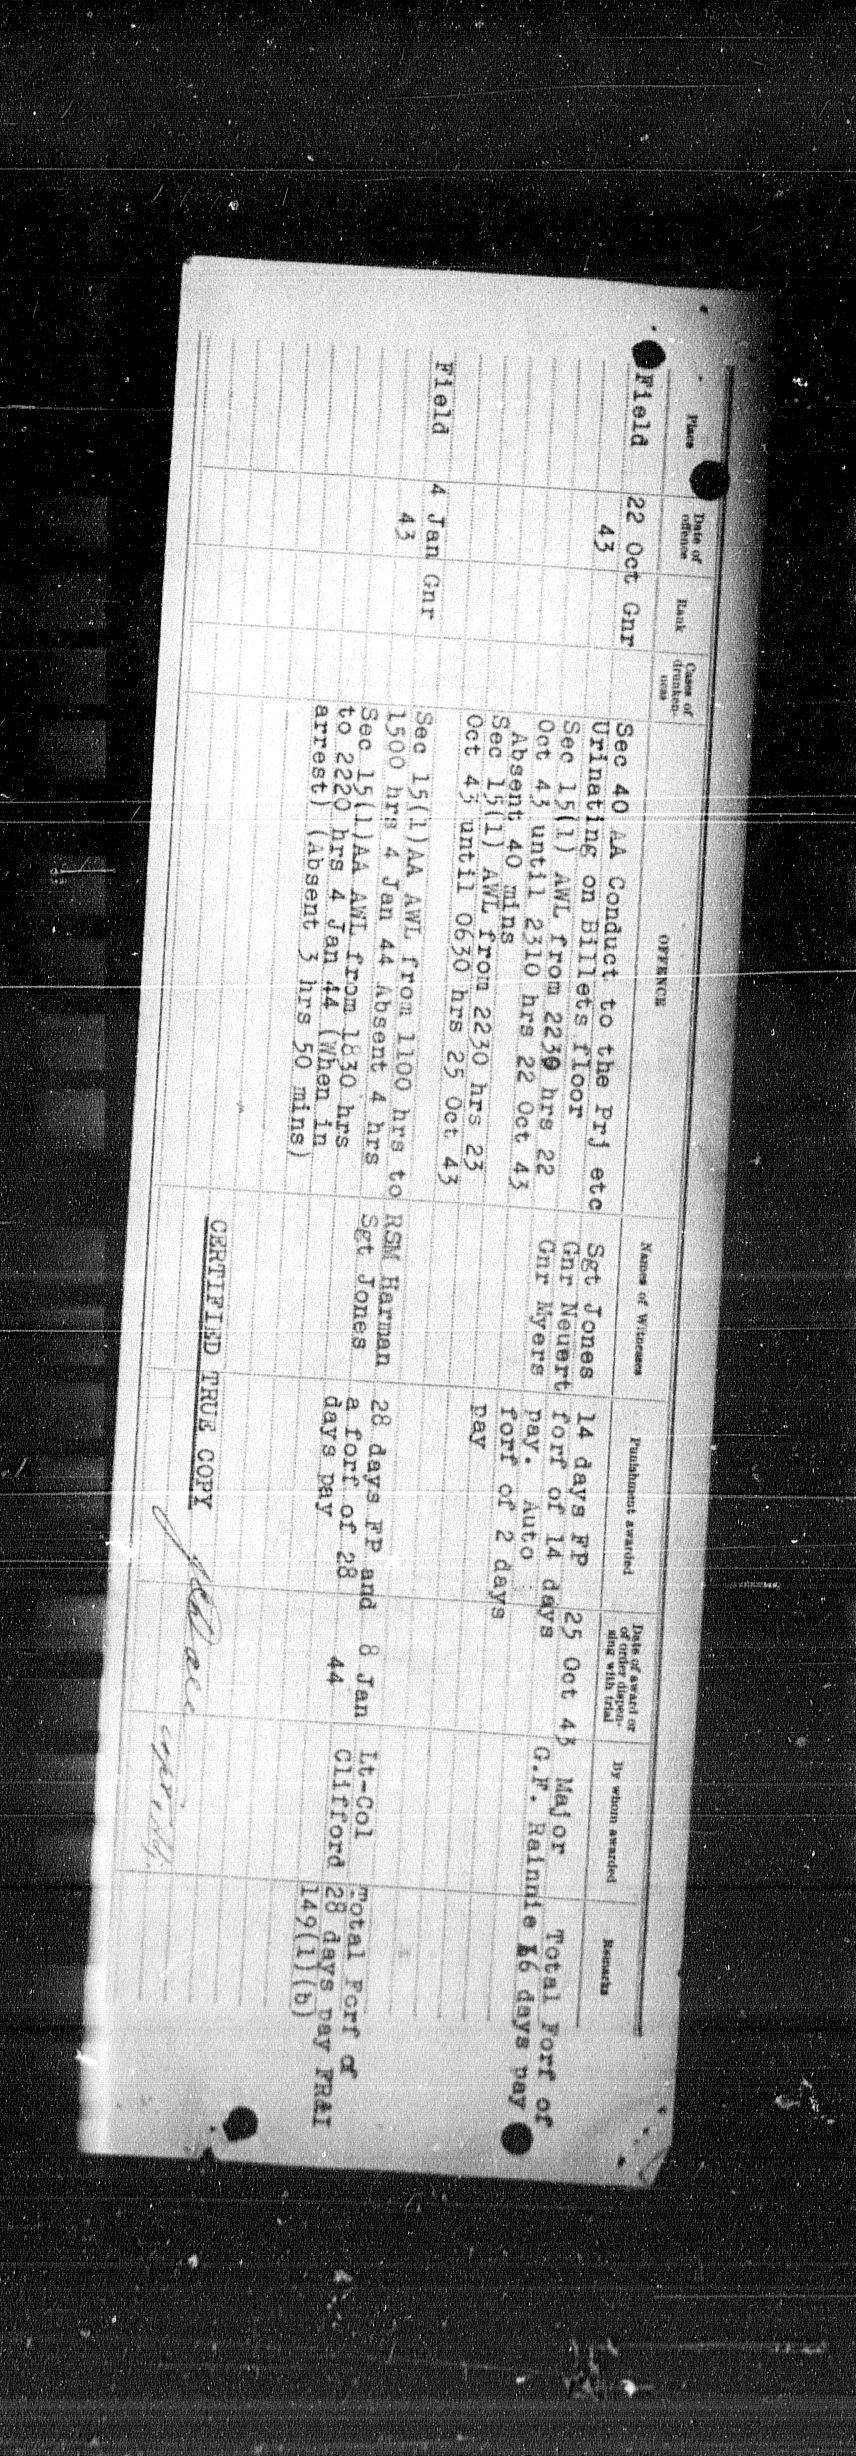 Place | Date of offence | Rank | Cases of drunken-ness | OFFENCE | Names of Witnesses | Punishment awarded | Date of award or of order dispen-sing with trial | By whom awarded | Remarks
Field 22 Oct Gnr Sec 40 AA Conduct to the Prj etc Sgt Jones 14 days FP 25 Oct 43 Major Total Forf of
43 Urinating on Billets floor Gnr Neuert forf of 14 days G.F. Rainnie 16 days pay
Sec 15(1) AWL from 2230 hrs 22 Gnr Myers pay. Auto
Oct 43 until 2310 hrs 22 Oct 43 forf of 2 days
Absent 40 mins pay
Sec 15(1) AWL from 2230 hrs 23
Oct 43 until 0630 hrs 25 Oct 43
Field 4 Jan Gnr Sec 15(1)AA AWL from 1100 hrs to RSM Harman 28 days FP and 8 Jan Lt-Col Total Forf of
43 1500 hrs 4 Jan 44 Absent 4 hrs Sgt Jones a forf of 28 44 Clifford 28 days pay FR&I
Sec 15(1)AA AWL from 1830 hrs days pay 149(1)(b)
to 2220 hrs 4 Jan 44 (When in
arrest) (Absent 3 hrs 50 mins)
CERTIFIED TRUE COPY